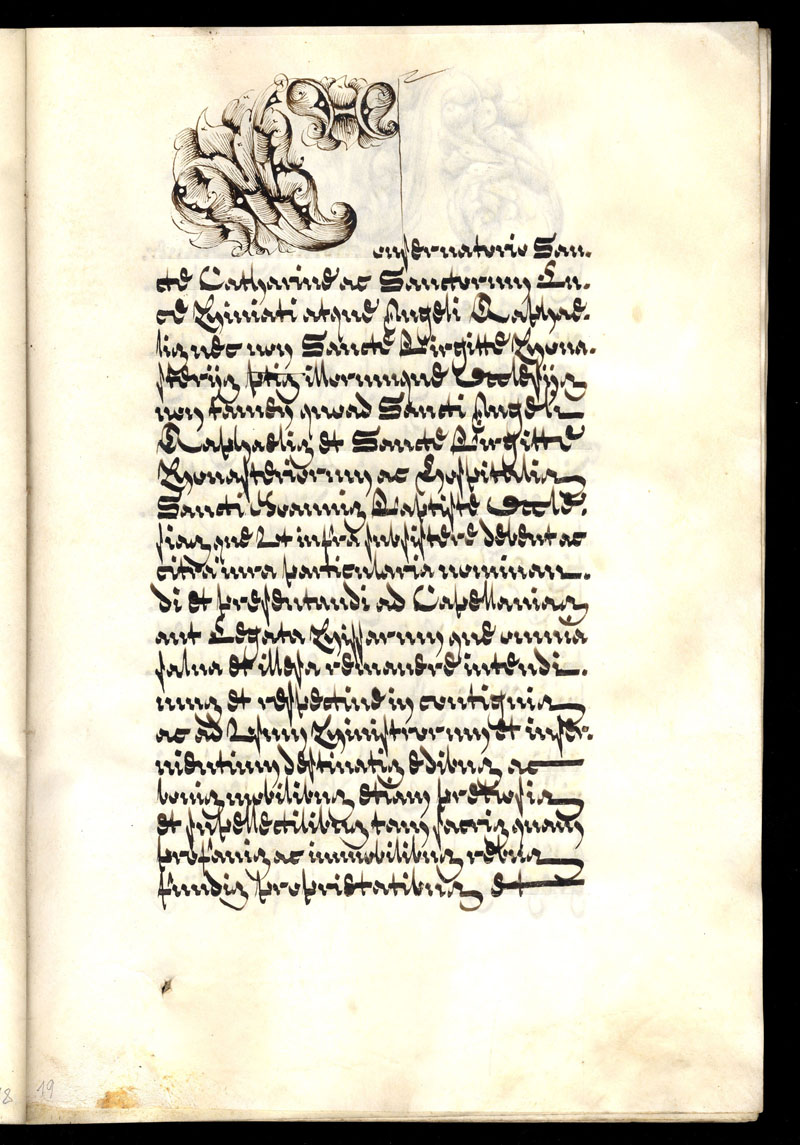 Conseruatorio San-
cte Catharine ac Sanctorum Lu-
ce Miniati atque Angeli Raphae-
lis nec non Sancte Birgitte Mona-
sterijs ptis illorumque Ecclesijs
non tamen quoad Sancti Angeli
Raphaelis et Sancte Birgitte
Monasteriorum ac Hospitalis
Sancti Ioannis Baptiste Eccle-
sias que Vt infra subsistere debent ac
citra iura particularia nominan-
di et presentandi ad Capellanias
aut Legata Missarum que omnia
salua et illesa remanere intendi-
mus et respectiue in contiguis
ac ad Vsum Ministrorum et inser-
uientium destinatis edibus ac
bonis mobilibus etiam pretiosis
et supellectilibus tam sacris quam
profanis ac immobilibus rebus
fundis proprietatibus et
18 19